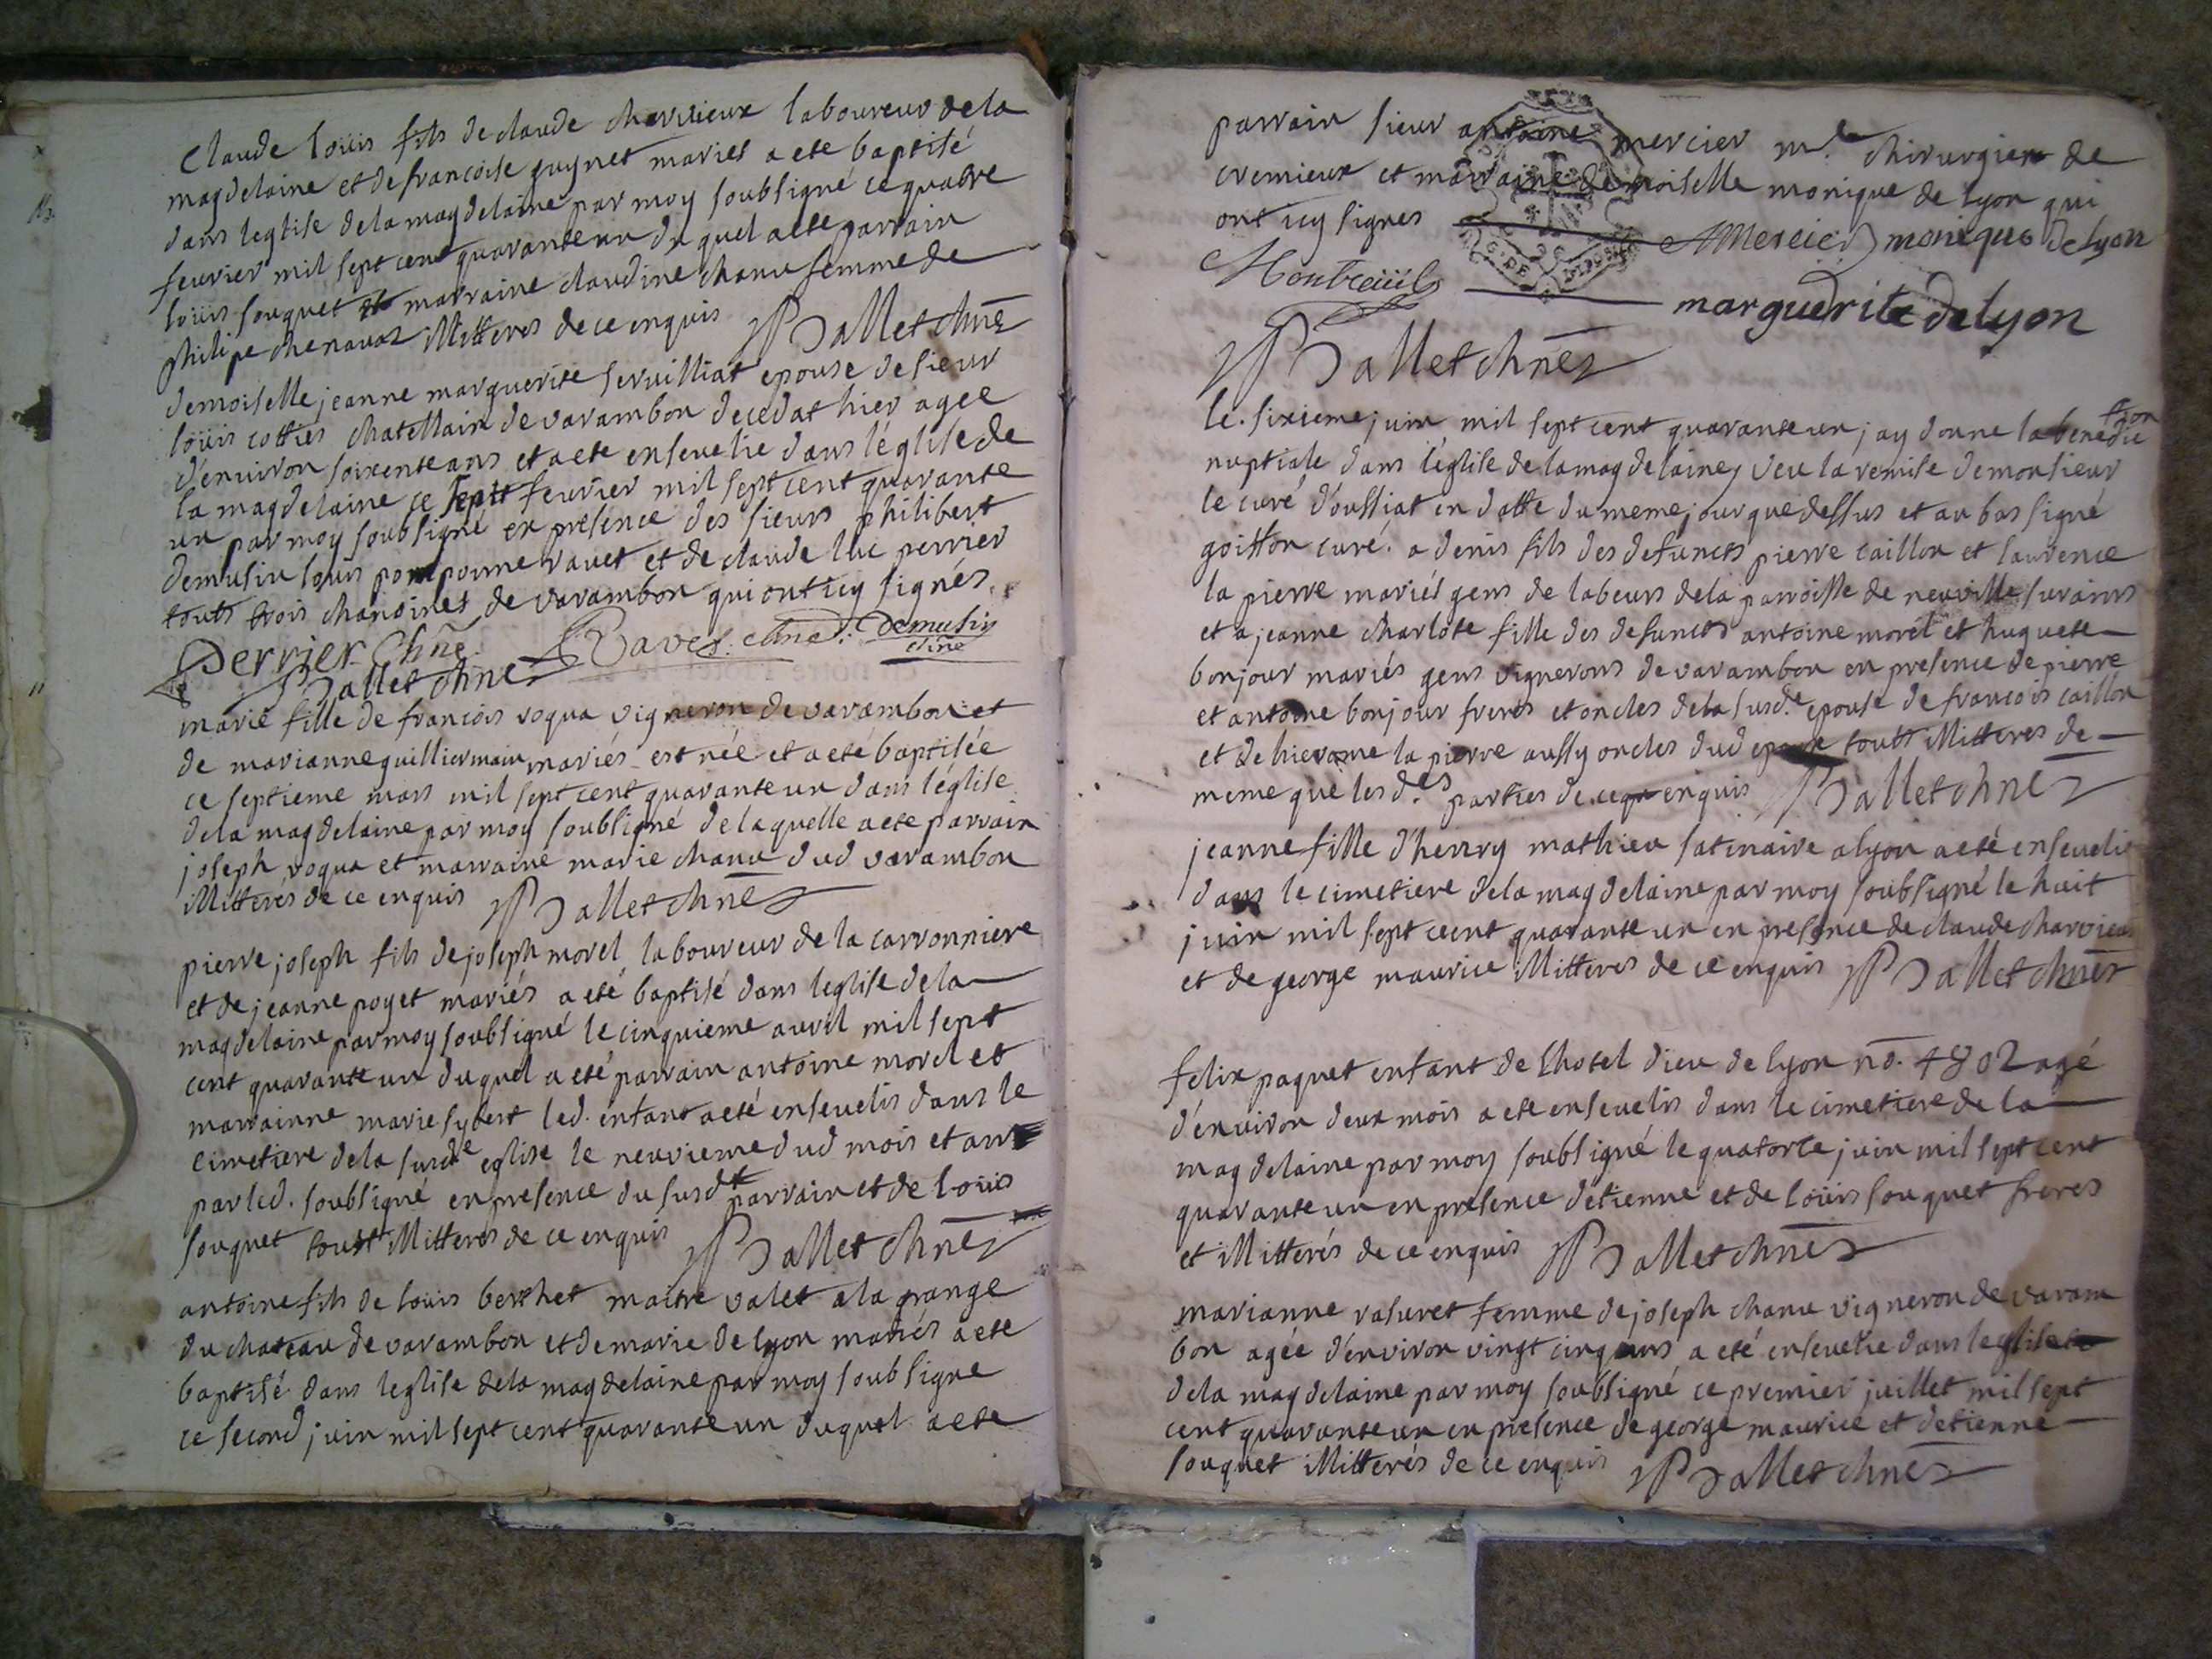 Claude loüis fils de claude charvieux laboureur dela
magdelaine et de francoise guynet mariés a eté baptisé
dans leglise dela magdelaine par moy soubsigné ce quatre
feuvrier mil sept cent quarante un du quel a ete parrain
loüis souquet marraine claudine chanu femme de
philipe chenavaz illitteres de ce enquis Ballet chne
demoiselle jeanne marguerite servilliat epouse de sieur
loüis cotties chatellain de varambon decedat hier agee
d'environ soixente ans et a ete ensevelie dans l'église de
la magdelaine ce sept feuvrier mil sept cent quarante
un par moy soubsigné en presence des sieurs philibert
demusin louis pomponne ravet et de claude luc perrier
touts trois chanoines de varambon qui ont icy signés.
Perrier Chne. Ravet. chne. Demusin chne
Ballet chne
marie fille de francois roqua vigneron de varambon et
de marianne guilliermain mariés est née et a eté baptisée
ce septieme mars mil sept cent quarante un dans l'église
dela magdelaine par moy soubsigné de laquelle a ete parrain
joseph roqua et marraine marie chanu dud varambon
illitterés de ce enquis Ballet chne
pierre joseph fils de joseph morel laboureur de la carronniere
et de jeanne poyet mariés a eté baptisé dans leglise dela
magdelaine par moy soubsigné le cinquieme avril mil sept
cent quarante un duquel a eté parrain antoine morel et
marrainne marie sybert led. enfant a eté ensevelis dans le
cimetiere dela susde eglise le neuvieme dud mois et an
par led. soubsigné en presence du susdt parrain et de loüis
souquet touts illitteres de ce enquis Ballet chne
antoine fils de loüis berthet maitre valet a la grange
du chateau de varambon et de marie de lyon mariés a ete
baptisé dans leglise dela magdelaine par moy soubsigne
ce second juin mil sept cent quarante un duquel a ete
parrain sieur antoine mercier me. chirurgien de
cremieux et marraine demoiselle monique de lyon qui
ont icy signes AMercier monique de lyon
Montreüil
marguerite de lyon
Ballet chne
le sixieme juin mil sept cent quarante un j ay donne la benediction
nuptiale dans l'église de la magdelaine, veu la remise de monsieur
le curé d'oussiat en datte du meme jour que dessus et au bas signé
goiffon curé. a denis fils des defuncts pierre caillon et laurence
la pierre mariés gens de labeurs dela parroisse de neuville surains
et a jeanne charlote fille des defuncts antoine morel et huguete
bonjour mariés gens vignerons de varambon en presence de pierre
et antoine bonjour freres et oncles dela susde. epouse de francois caillon
et de hierome la pierre aussy oncles dud epoux touts illitteres de
meme que les des. parties de ce enquis Ballet chne
jeanne fille d'henry mathieu satinaire a lyon a eté ensevelie
dans le cimetiere dela magdelaine par moy soubsigné le huit
juin mil sept cent quarante un en presence de claude charvieux
et de george maurice illitteres de ce enquis Ballet chne
felix paquet enfant de lhotel dieu de lyon no. 4802 agé
d'environ deux mois a ete ensevelis dans le cimetiere de la
magdelaine par moy soubsigné le quatorze juin mil sept cent
quarante un en presence detienne et de loüis souquet freres
et illitterés de ce enquis Ballet chne
marianne rasuret femme de joseph chanu vigneron de varam
bon agée d'environ vingt cinq ans a eté ensevelie dans leglise
dela magdelaine par moy soubsigné ce premier juillet mil sept
cent quarante un en presence de george maurice et detienne
souquet illitterés de ce enquis Ballet chne